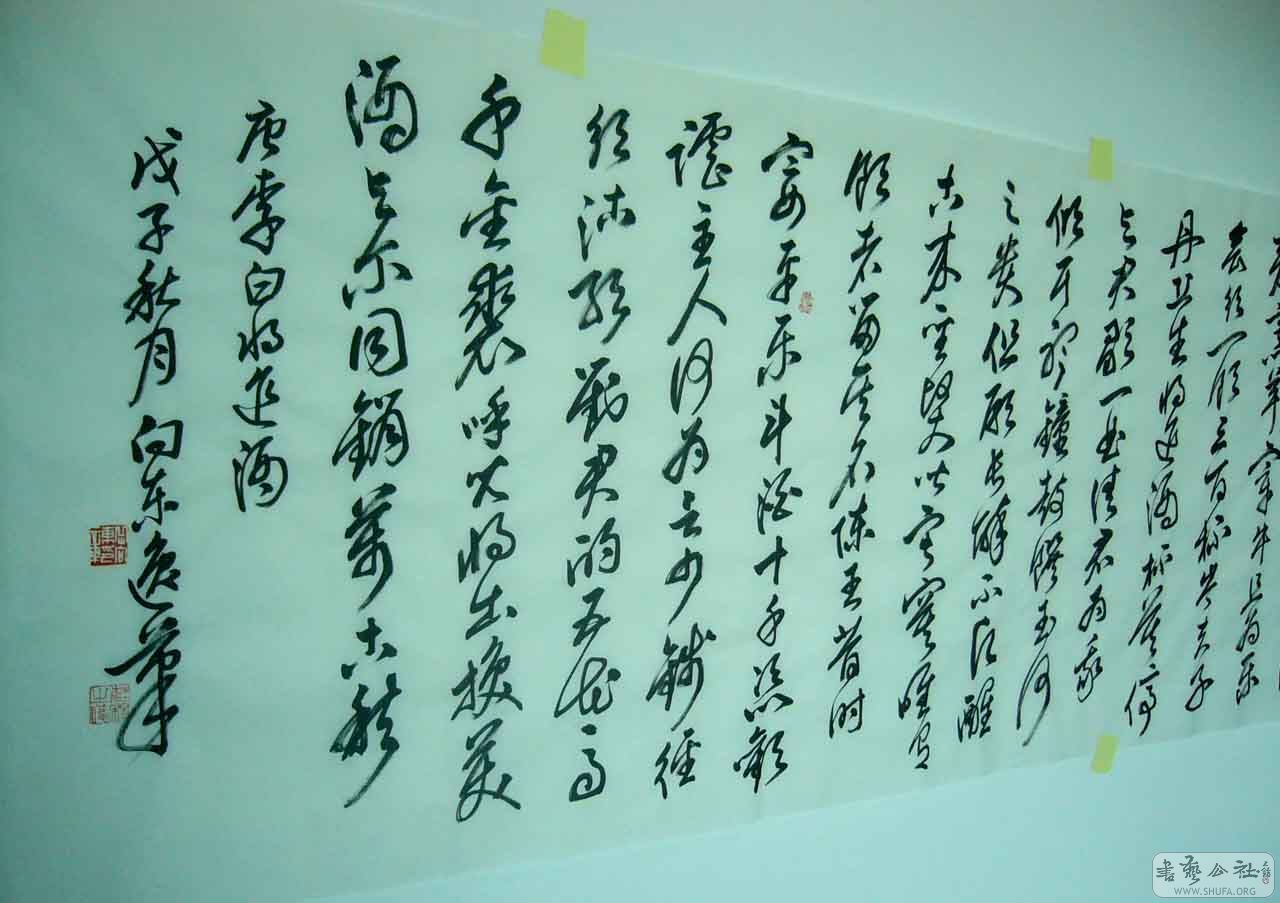 宰牛且为乐
會须一飲三百杯岑夫子
丹丘生将進酒杯莫停
与君歌一曲请君为我
倾耳听鐘鼓饌玉何
足贵但愿长醉不復醒
古来圣贤皆寂寞唯有
飲者留其名陈王昔时
宴平乐斗酒十千恣歡
谑主人何为言少錢径
须沽取對君酌五花马
千金裘呼儿将出换美
酒与尔同銷萬古愁
唐李白将進酒
戊子秋月向东逸筆
書藝公社
WWW.SHUFA.ORG